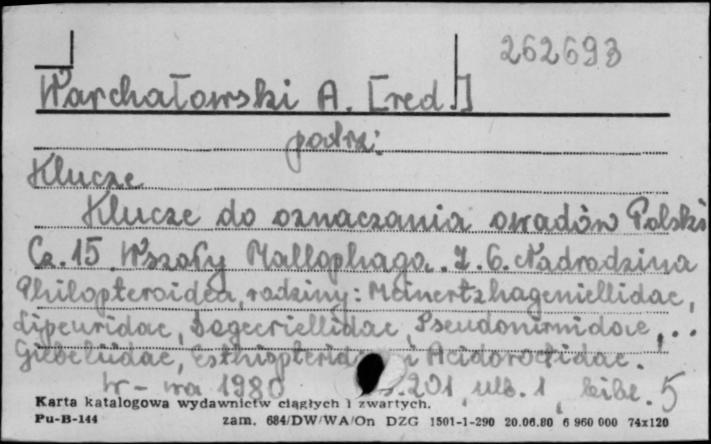 262693
Warchałowski A. [red.]
podrz:
Klucze
Klucze do oznaczania owadów Polski
Cz. 15. Wszoły Mallophaga. Z. 6. Nadrodzina
Philopteroidea, rodziny: Meinertzhageniellidae,
Lipeuridae, Pseudonirmidae,...
Giebeliidae, i Acidoroctidae.
W-wa 1980 s. 201, ulb. 1, bibl. 5
Karta katalogowa wydawnictw ciągłych i zwartych.
Pu-B-144 zam. 684/DW/WA/On DZG 1501-1-290 20.06.80 6 960 000 74x120